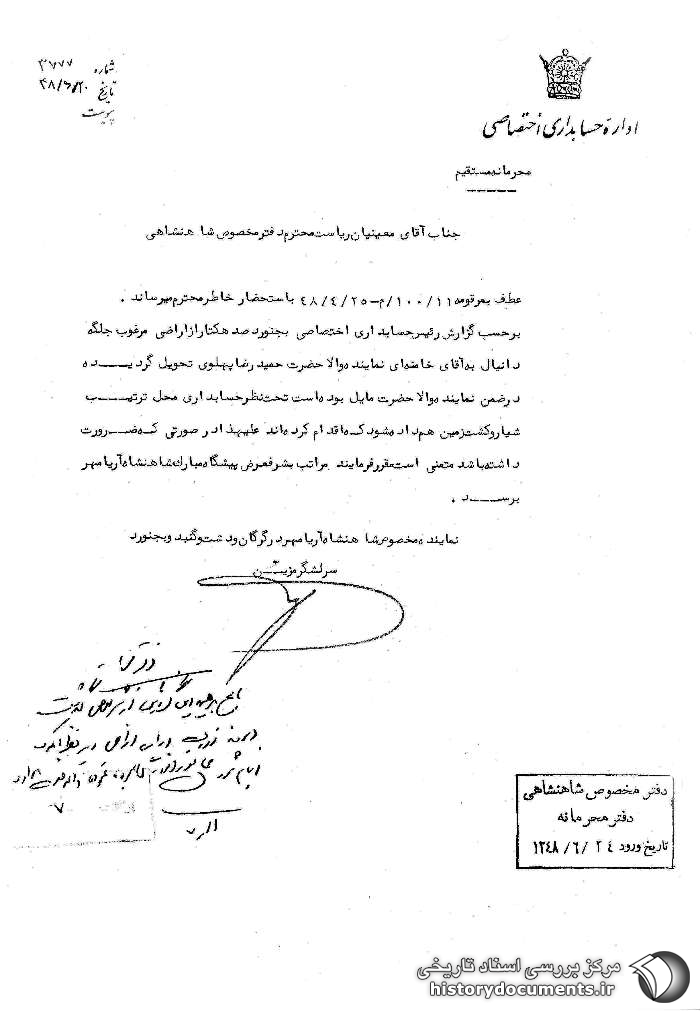 شماره ۳۷۷۷
تاریخ ۴۸/۶/۲۰
پیوست
اداره حسابداری اختصاصی
محرمانه مستقیم
جناب آقای معینیان ریاست محترم دفتر مخصوص شاهنشاهی
عطف بمرقومه ۱۰۰/۱۱/م-۴۸/۴/۲۵ باستحضار خاطر محترم میرساند .
برحسب گزارش رئیس حسابداری اختصاصی بجنورد صد هکتار از اراضی مرغوب جلگه
دانیال به آقای خامنه‌ای نماینده والا حضرت حمید رضا پهلوی تحویل گردیده
در ضمن نماینده والا حضرت مایل بوده است تحت نظر حسابداری محل ترتیب
شیار و کشت زمین هم داده شود که اقدام کرده اند علیهذا در صورتی که ضرورت
داشته باشد متمنی است مقرر فرمایند مراتب بشرفعرض پیشگاه مبارک شاهنشاه آریامهر
برسد .
نماینده مخصوص شاهنشاه آریامهر در گرگان و دشت و گنبد و بجنورد
سرلشگر مزین
دفتر مخصوص شاهنشاهی
دفتر محرمانه
تاریخ ورود ۲۴ /۶/ ۱۳۴۸
مرکز بررسی اسناد تاریخی
historydocuments.ir